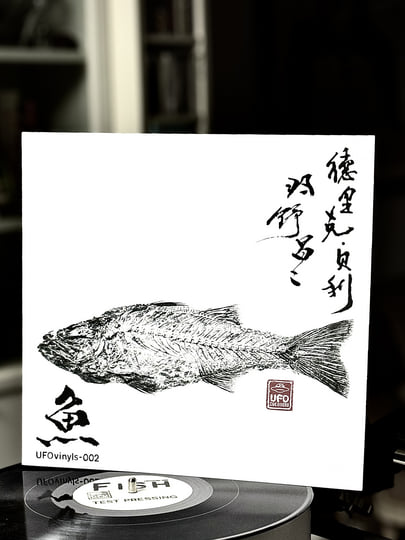 德里克·貝利
羽野昌二
魚
UFOvinyls-002
UFO
FISH
TEST PRESSING